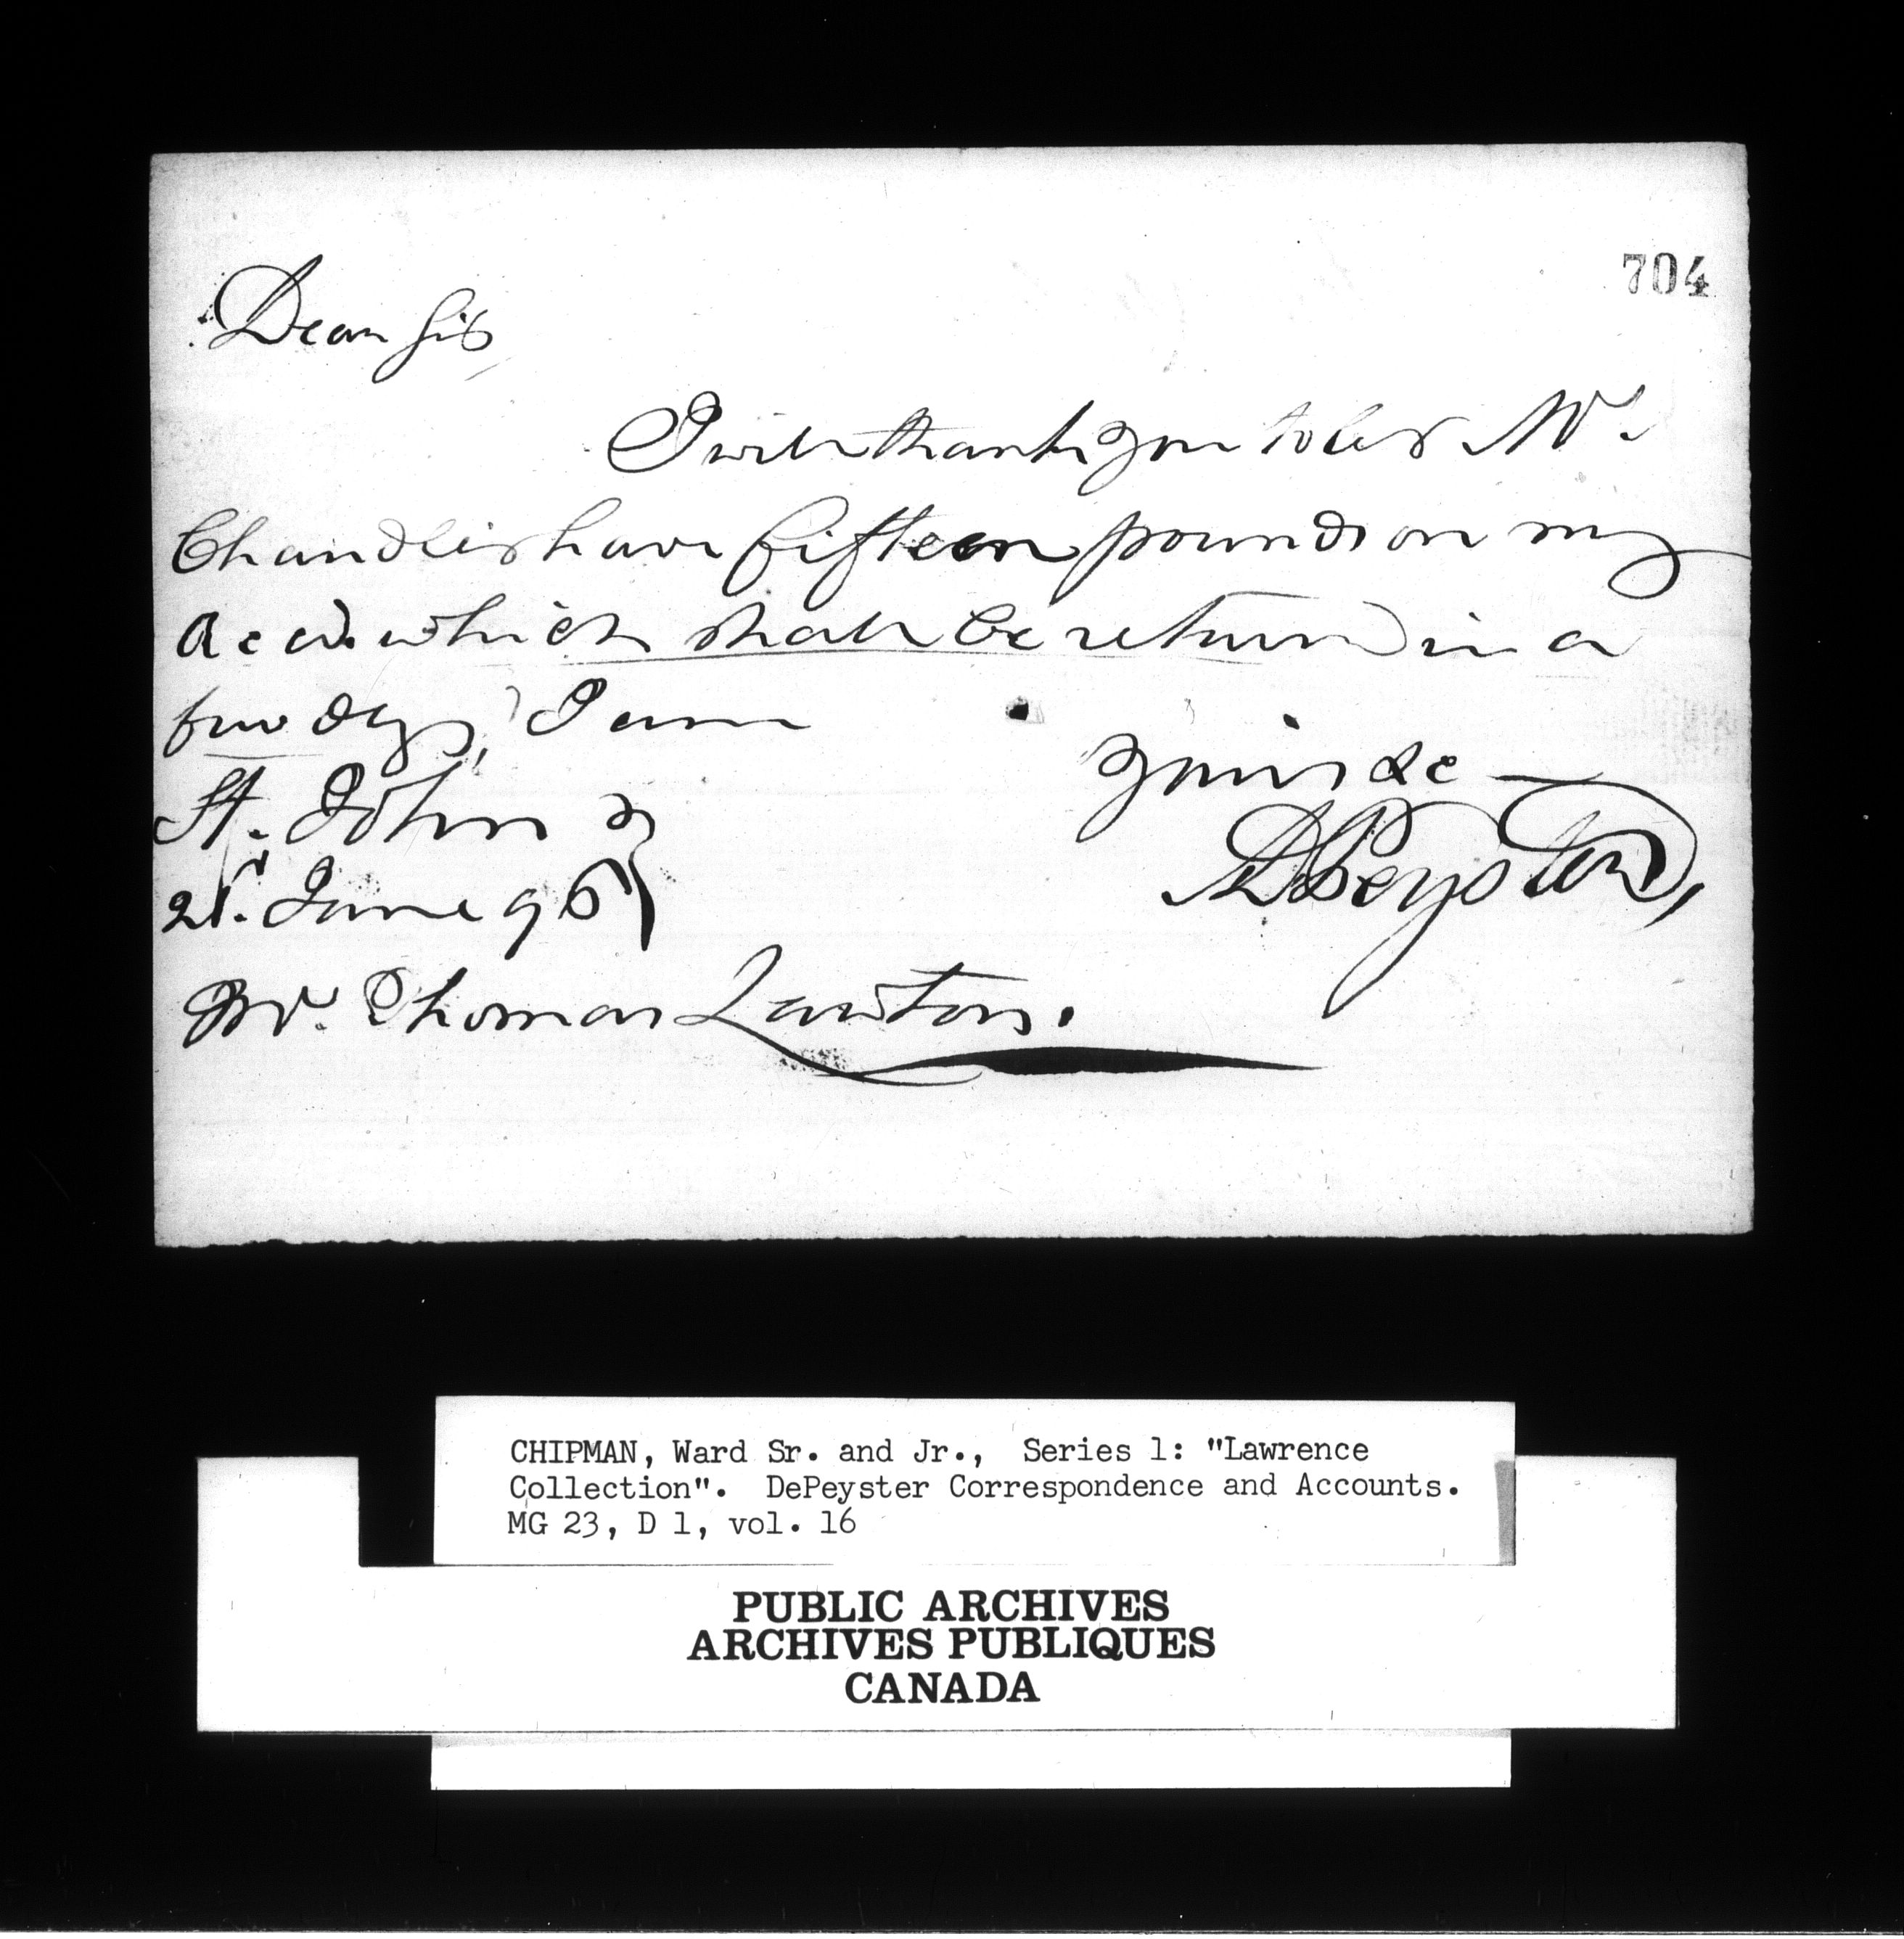 704
Dear Sir,
I will thank you to let Mr.
Chandler have fifteen pounds on my
Acct. which shall be return'd in a
few dys, I am
yours &c
St. John
21st. June 96
ADPeyster,
Mr. Thomas Lawton.
CHIPMAN, Ward Sr. and Jr., Series 1: "Lawrence
Collection". DePeyster Correspondence and Accounts.
MG 23, D 1, vol. 16
PUBLIC ARCHIVES
ARCHIVES PUBLIQUES
CANADA